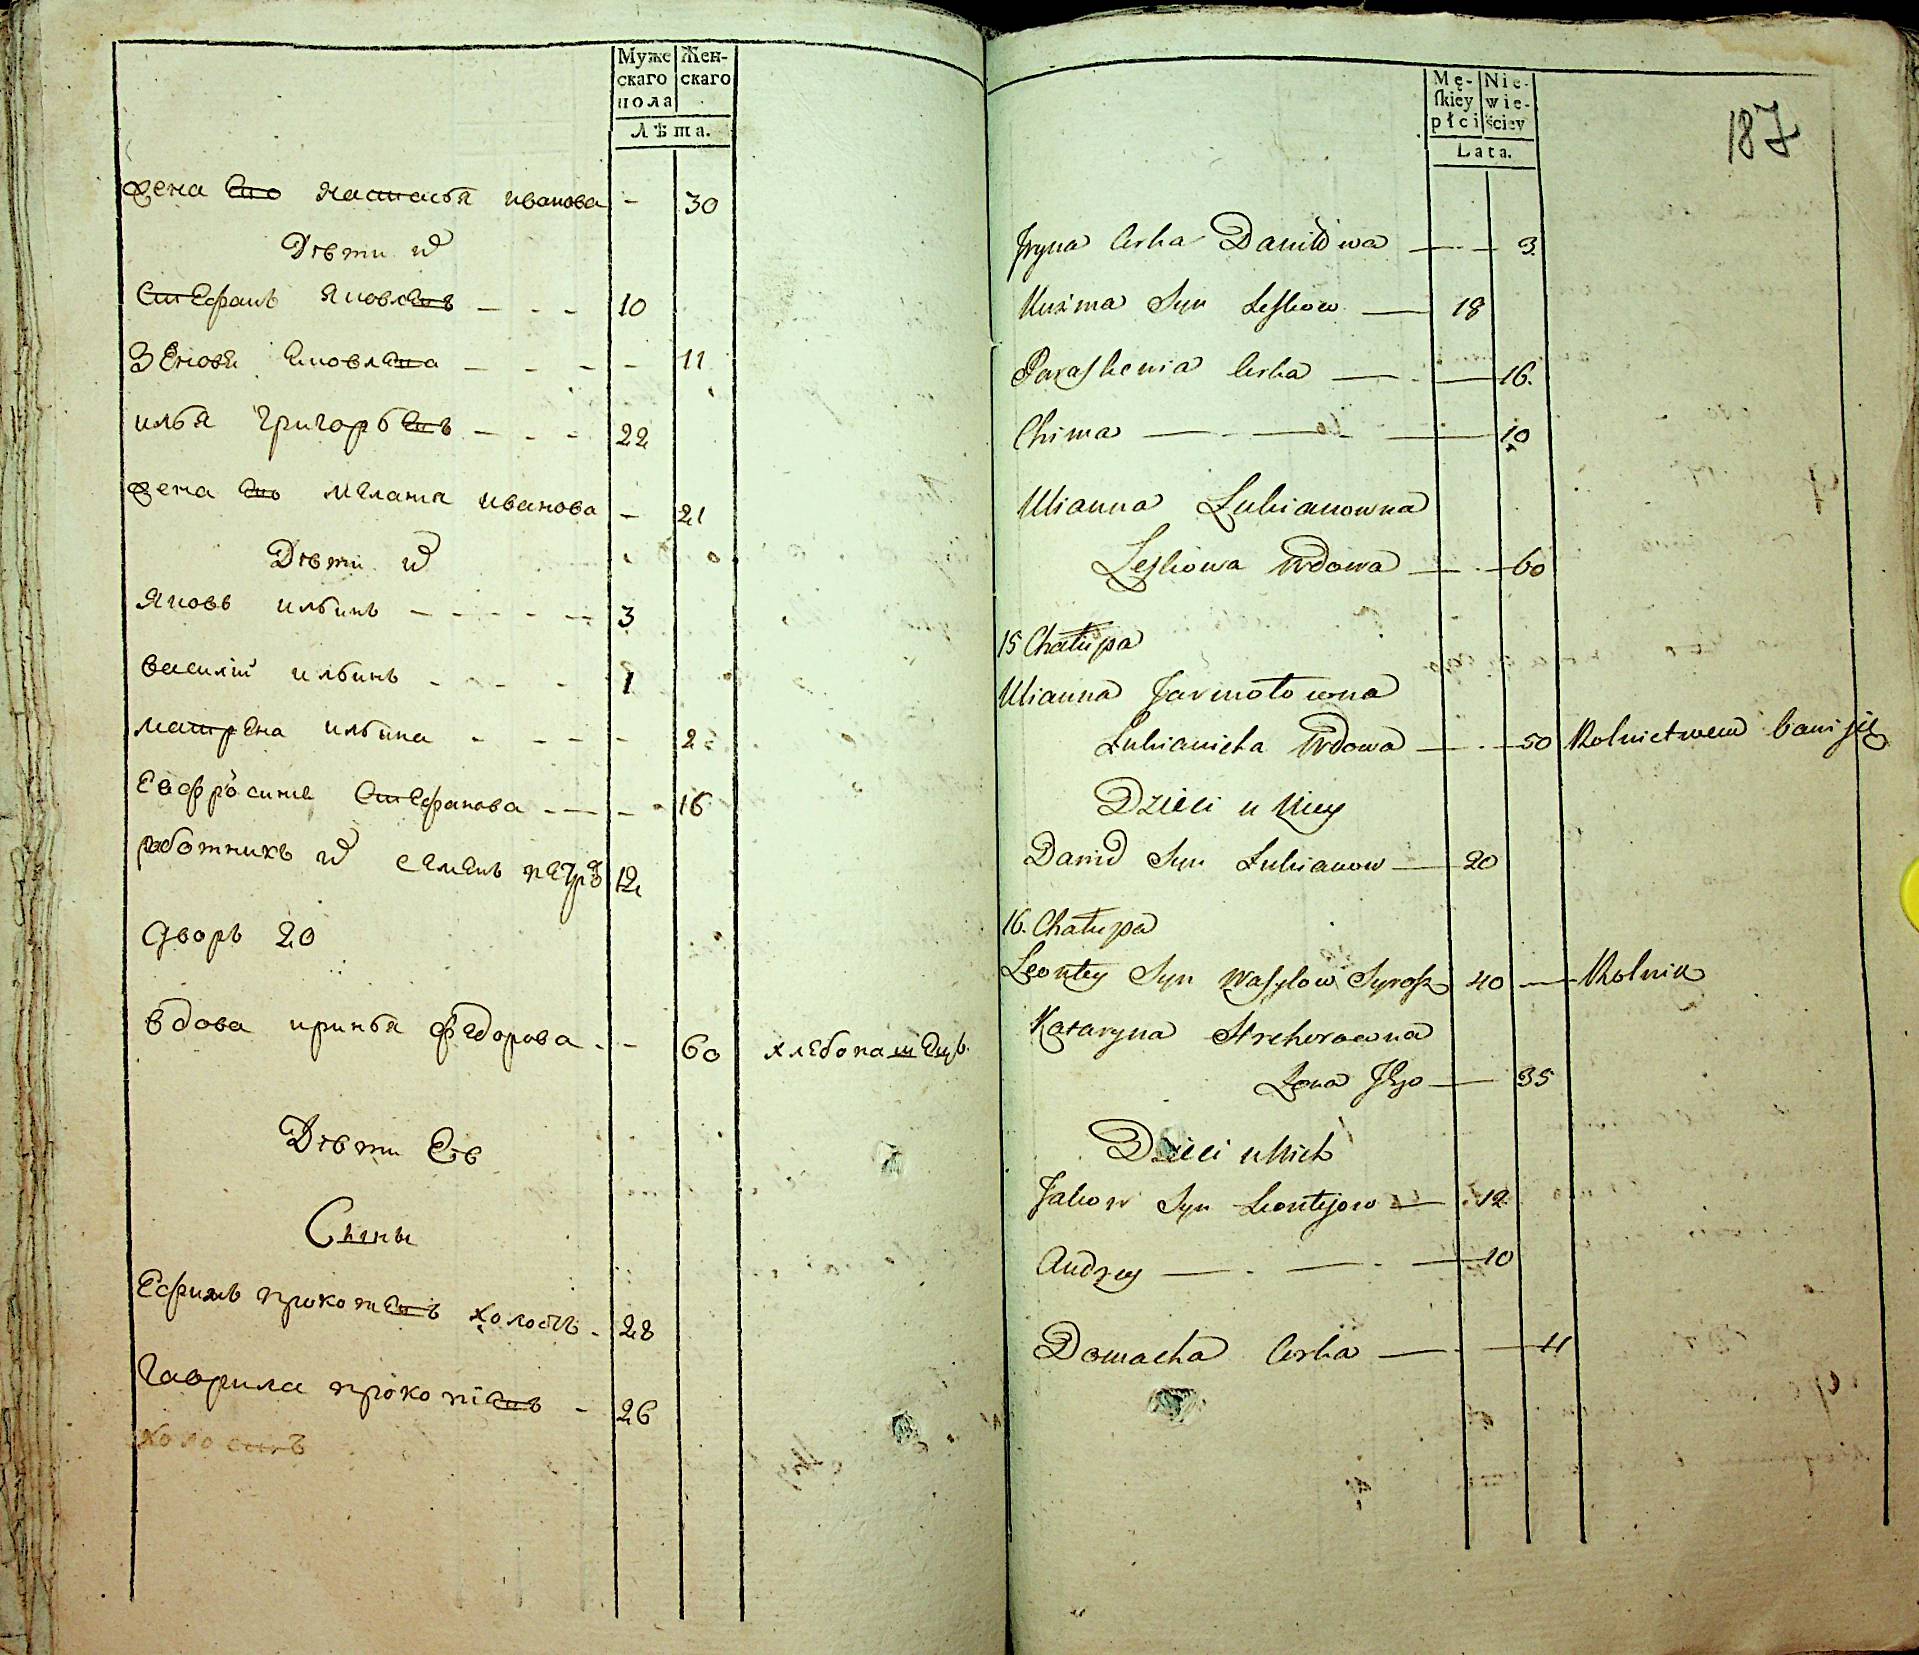 Муже
скаго
пола
Жен-
скаго
Лѣта.
жена Его Настасья иванова - 30
Дѣти их
Стефанъ Яковлевъ - - - 10
Зѣновья Яковлева - - - - 11
илья Григорьевъ - - - 22
жена Его Меланья иванова - 21
Дѣти их
Яковъ ильинъ - - - - - 3
василій ильинъ - - - - 1
матрена ильина - - - - - 2
Евфросинья Стефанова - - - 16
работникъ их семенъ петро 12
дворъ 20
вдова иринья федорова - - 60 хлебопашецъ
Дѣти Еѣ
Сыны
Ефимъ прокопьевъ холостъ - 28
Гаврила прокопіевъ - 26
холостъ
187
Mę-
skiey
płci
Nie-
wie-
ściey
Lata.
Jryna Corka Daniłowa — - — 3
Kuźma Syn Leskow — 18
Paraskewia Corka — - — 16.
Chima — - — - — 10
Ulianna Lukianowna
Leskowa Wdowa — - — 60
15 Chałupa
Ulianna Jarmołowna
Lukianicha Wdowa — - — 50 Rolnictwem bawi się
Dzieci u Niey
Dawid Syn Lukianow — 20
16. Chałupa
Leontey Syn Wasylow 40 — Rolnik
Kataryna
Zona Jego — 35
Dzieci u Nich
Jakow Syn Leontejow — 12
Andrzey — - — - — 10
Domacha Corka — - — 11